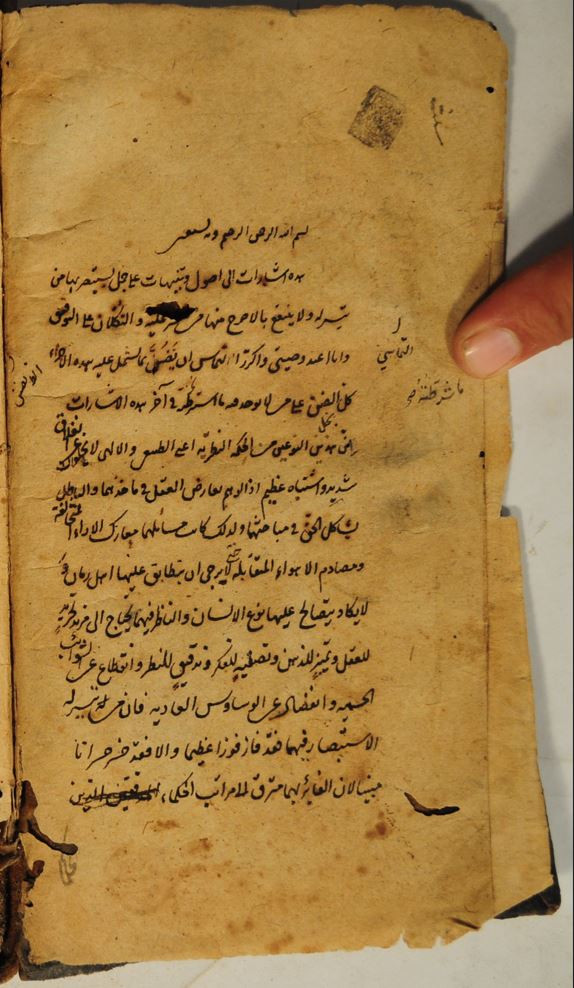 بسم الله الرحمن الرحيم وبه نستعين
هذه اشارات الى اصول وتنبيهات على جمل يستبصر بها من
تيسر له ولا ينتفع بالاصرح منها من تعسر عليه والتكلان على التوفيق
وانا اعيد وصيتي واكرر التماس ان يَضُنَّ بما يشتمل عليه هذه الاجزاء
كل الضن على من لا يوجد فيه ما اشترطه في آخر هذه الاشارات
هذين النوعين من الحكمة النظريه اعني الطبيعي والالهي لا يخلوان عن انغلاق
شديد واشتباه عظيم اذ الوهم يعارض العقل في ماخذهما والباطل
يشاكل الحق في مباحثهما ولذلك كانت مسائلهما معارك الاراء المتخالفة
ومصادم الاهواء المتقابله حتى لا يرجى ان يتطابق عليها اهل زمان و
لا يكاد يتصالح عليها نوع الانسان والناظر فيهما يحتاج الى مزيد تجريد
للعقل وتميز للذهن وتصفيه للفكر وتدقيق للنظر وانقطاع عن الشوائب
الحسيه وانفصال عن الوساوس العاديه فان من تيسر له
الاستبصار فيهما فقد فاز فوزا عظيما والا فقد خسر خسرانا
مبينا لان الفائز بهما مترق الى مراتب الحكماء المحققين الذين
التماسي
ما شرطته